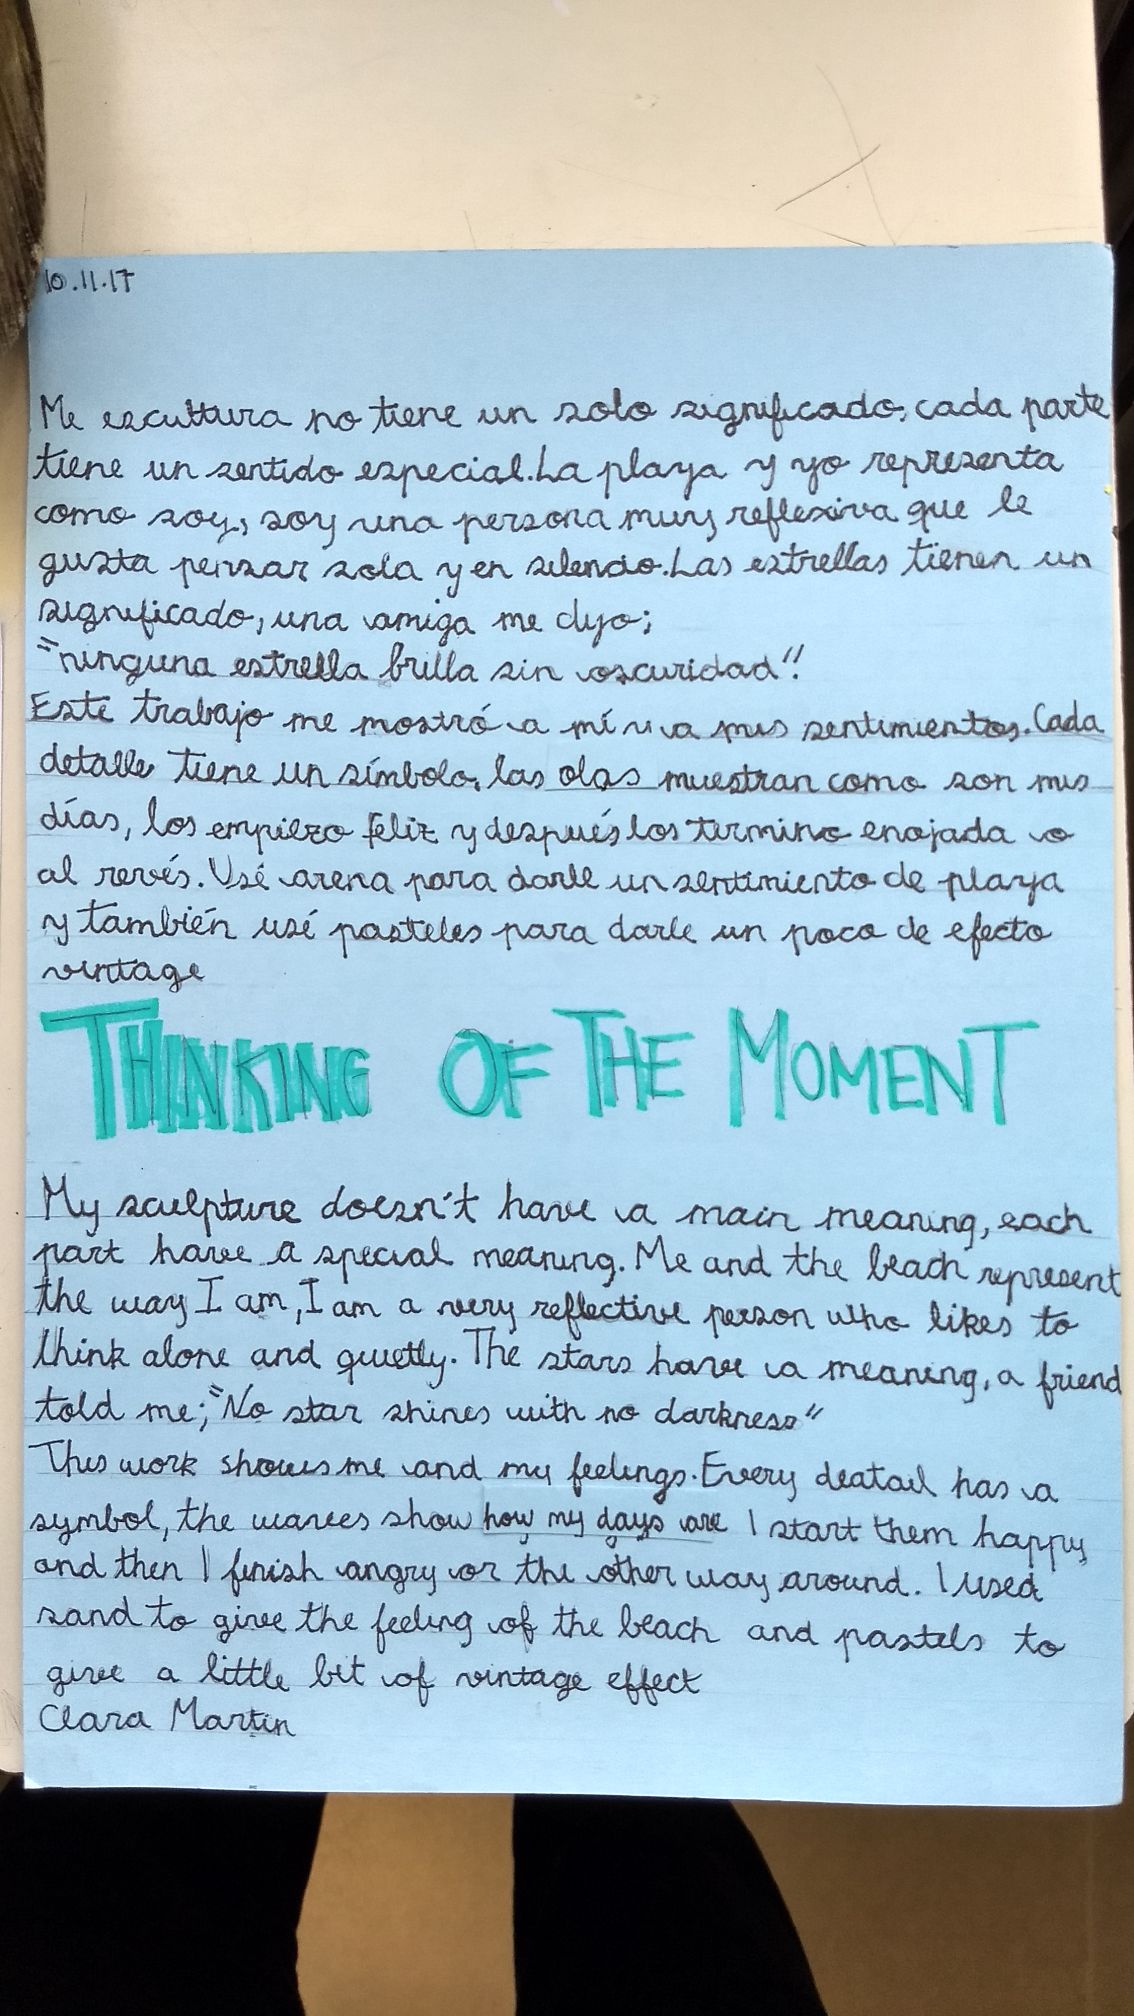 10.11.17
Me escultura no tiene un solo significado, cada parte
tiene un sentido especial. La playa y yo representa
como soy, soy una persona muy reflexiva que le
gusta pensar sola y en silencio. Las estrellas tienen un
significado, una amiga me dijo;
"ninguna estrella brilla sin oscuridad"!
Este trabajo me mostró a mí y a mis sentimientos. Cada
detalle tiene un símbolo, las olas muestran como son mis
días, los empiezo feliz y después los termino enojada o
al revés. Usé arena para darle un sentimiento de playa
y también usé pasteles para darle un poco de efecto
vintage
THINKING OF THE MOMENT
My sculpture doesn't have a main meaning, each
part have a special meaning. Me and the beach represent
the way I am, I am a very reflective person who likes to
think alone and quietly. The stars have a meaning, a friend
told me; "No star shines with no darkness"
This work shows me and my feelings. Every deatail has a
symbol, the waves show how my days are I start them happy
and then I finish angry or the other way around. I used
sand to give the feeling of the beach and pastels to
give a little bit of vintage effect
Clara Martin